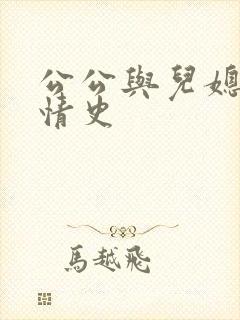 公公與兒媳
情史
馬越飛